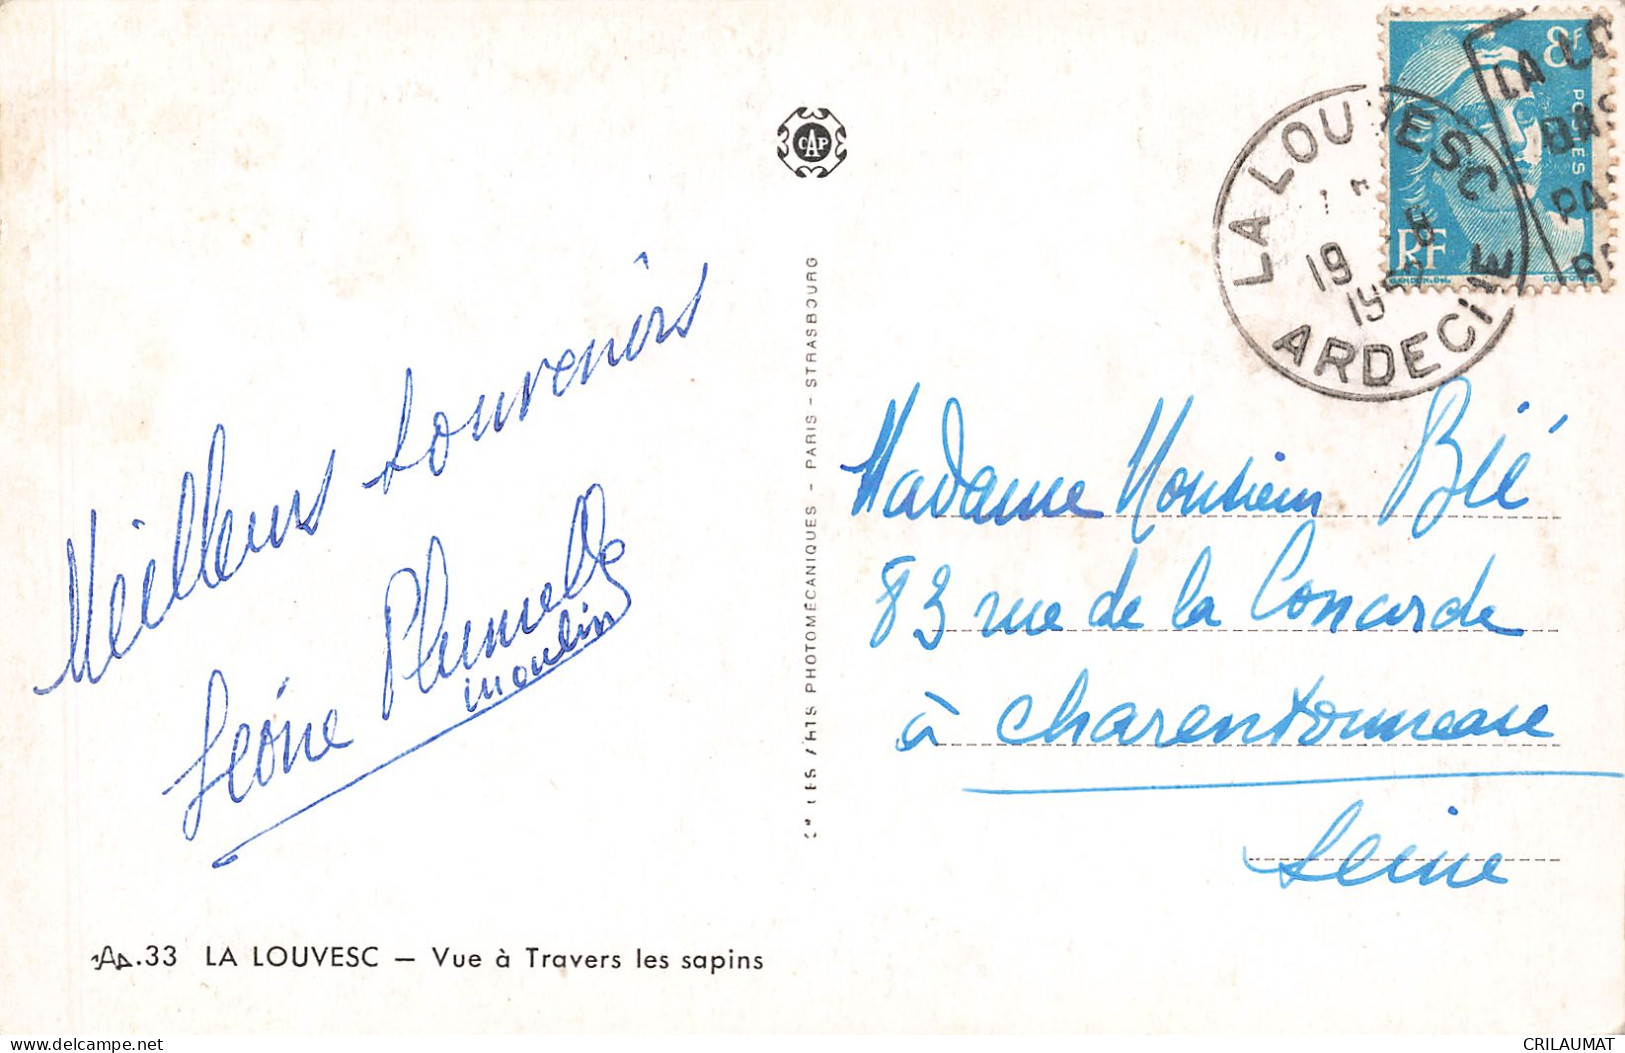 Meilleurs souvenirs
Léonie Plumelle
moulin
Aa.33 LA LOUVESC — Vue à Travers les sapins
CAP
ARTS PHOTOMÉCANIQUES - PARIS - STRASBOURG
8F
POSTES
RF
LA LOUVESC
19 -8
ARDECHE
LA LO
BAS
PA
Madame Monsieur Blé
83 rue de la Concorde
à Charentonneau
Seine
CRILAUMAT